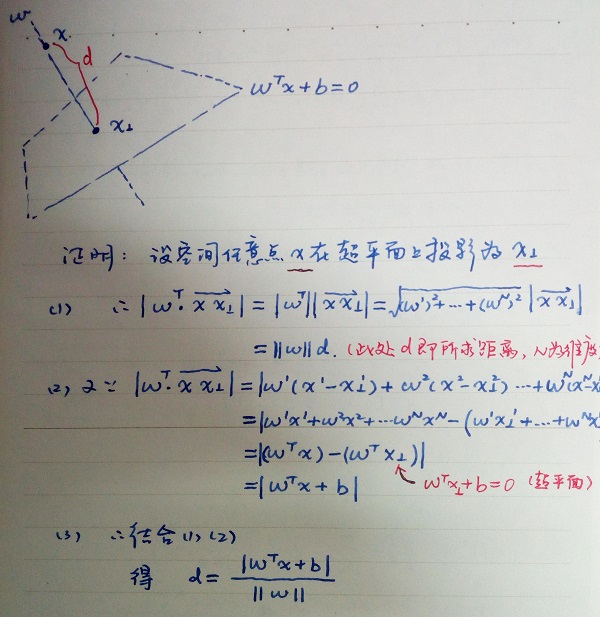 w
x
d
x⊥
wᵀx+b=0
证明: 设空间任意点 x 在超平面上投影为 x⊥
(1) ∴ |wᵀ·xx⊥→| = |wᵀ||xx⊥→| = √((w¹)²+⋯+(wᴺ)²) |xx⊥→|
= ||w|| d. (此处 d 即所求距离, N为维度
(2) 又∵ |wᵀ·xx⊥→| = |w¹(x¹-x⊥¹) + w²(x²-x⊥²)⋯+wᴺ(xᴺ-x
= |w¹x¹+w²x²+⋯wᴺxᴺ-(w¹x⊥¹+⋯+wᴺx
= |(wᵀx)-(wᵀx⊥)|
= |wᵀx+b| wᵀx⊥+b=0 (超平面)
(3) ∴结合(1),(2)
得 d = |wᵀx+b| / ||w||